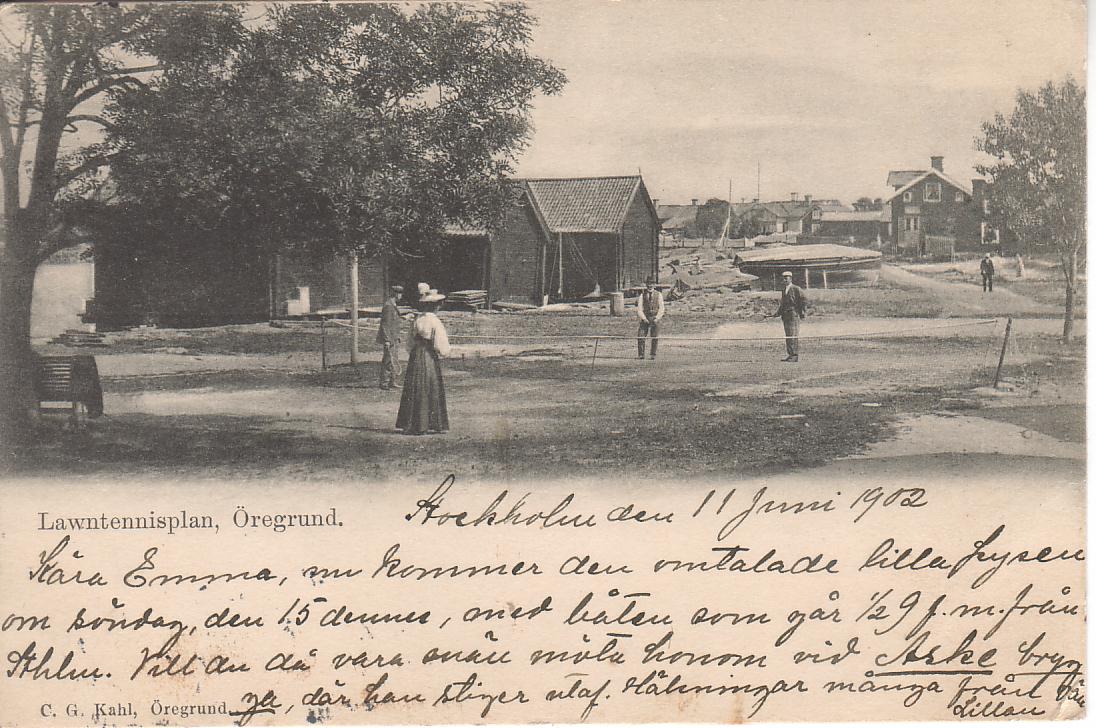 Lawntennisplan, Öregrund.
Stockholm den 11 Juni 1902
Kära Emma, nu kommer den omtalade lilla
om söndag, den 15 dennes, med båten som går ½ 9 f. m. från
Sthlm. Vill du då vara snäll möta honom vid Aske bryg
ga, där han stiger utaf. Hälsningar många från
Lillan
C. G. Kahl, Öregrund.